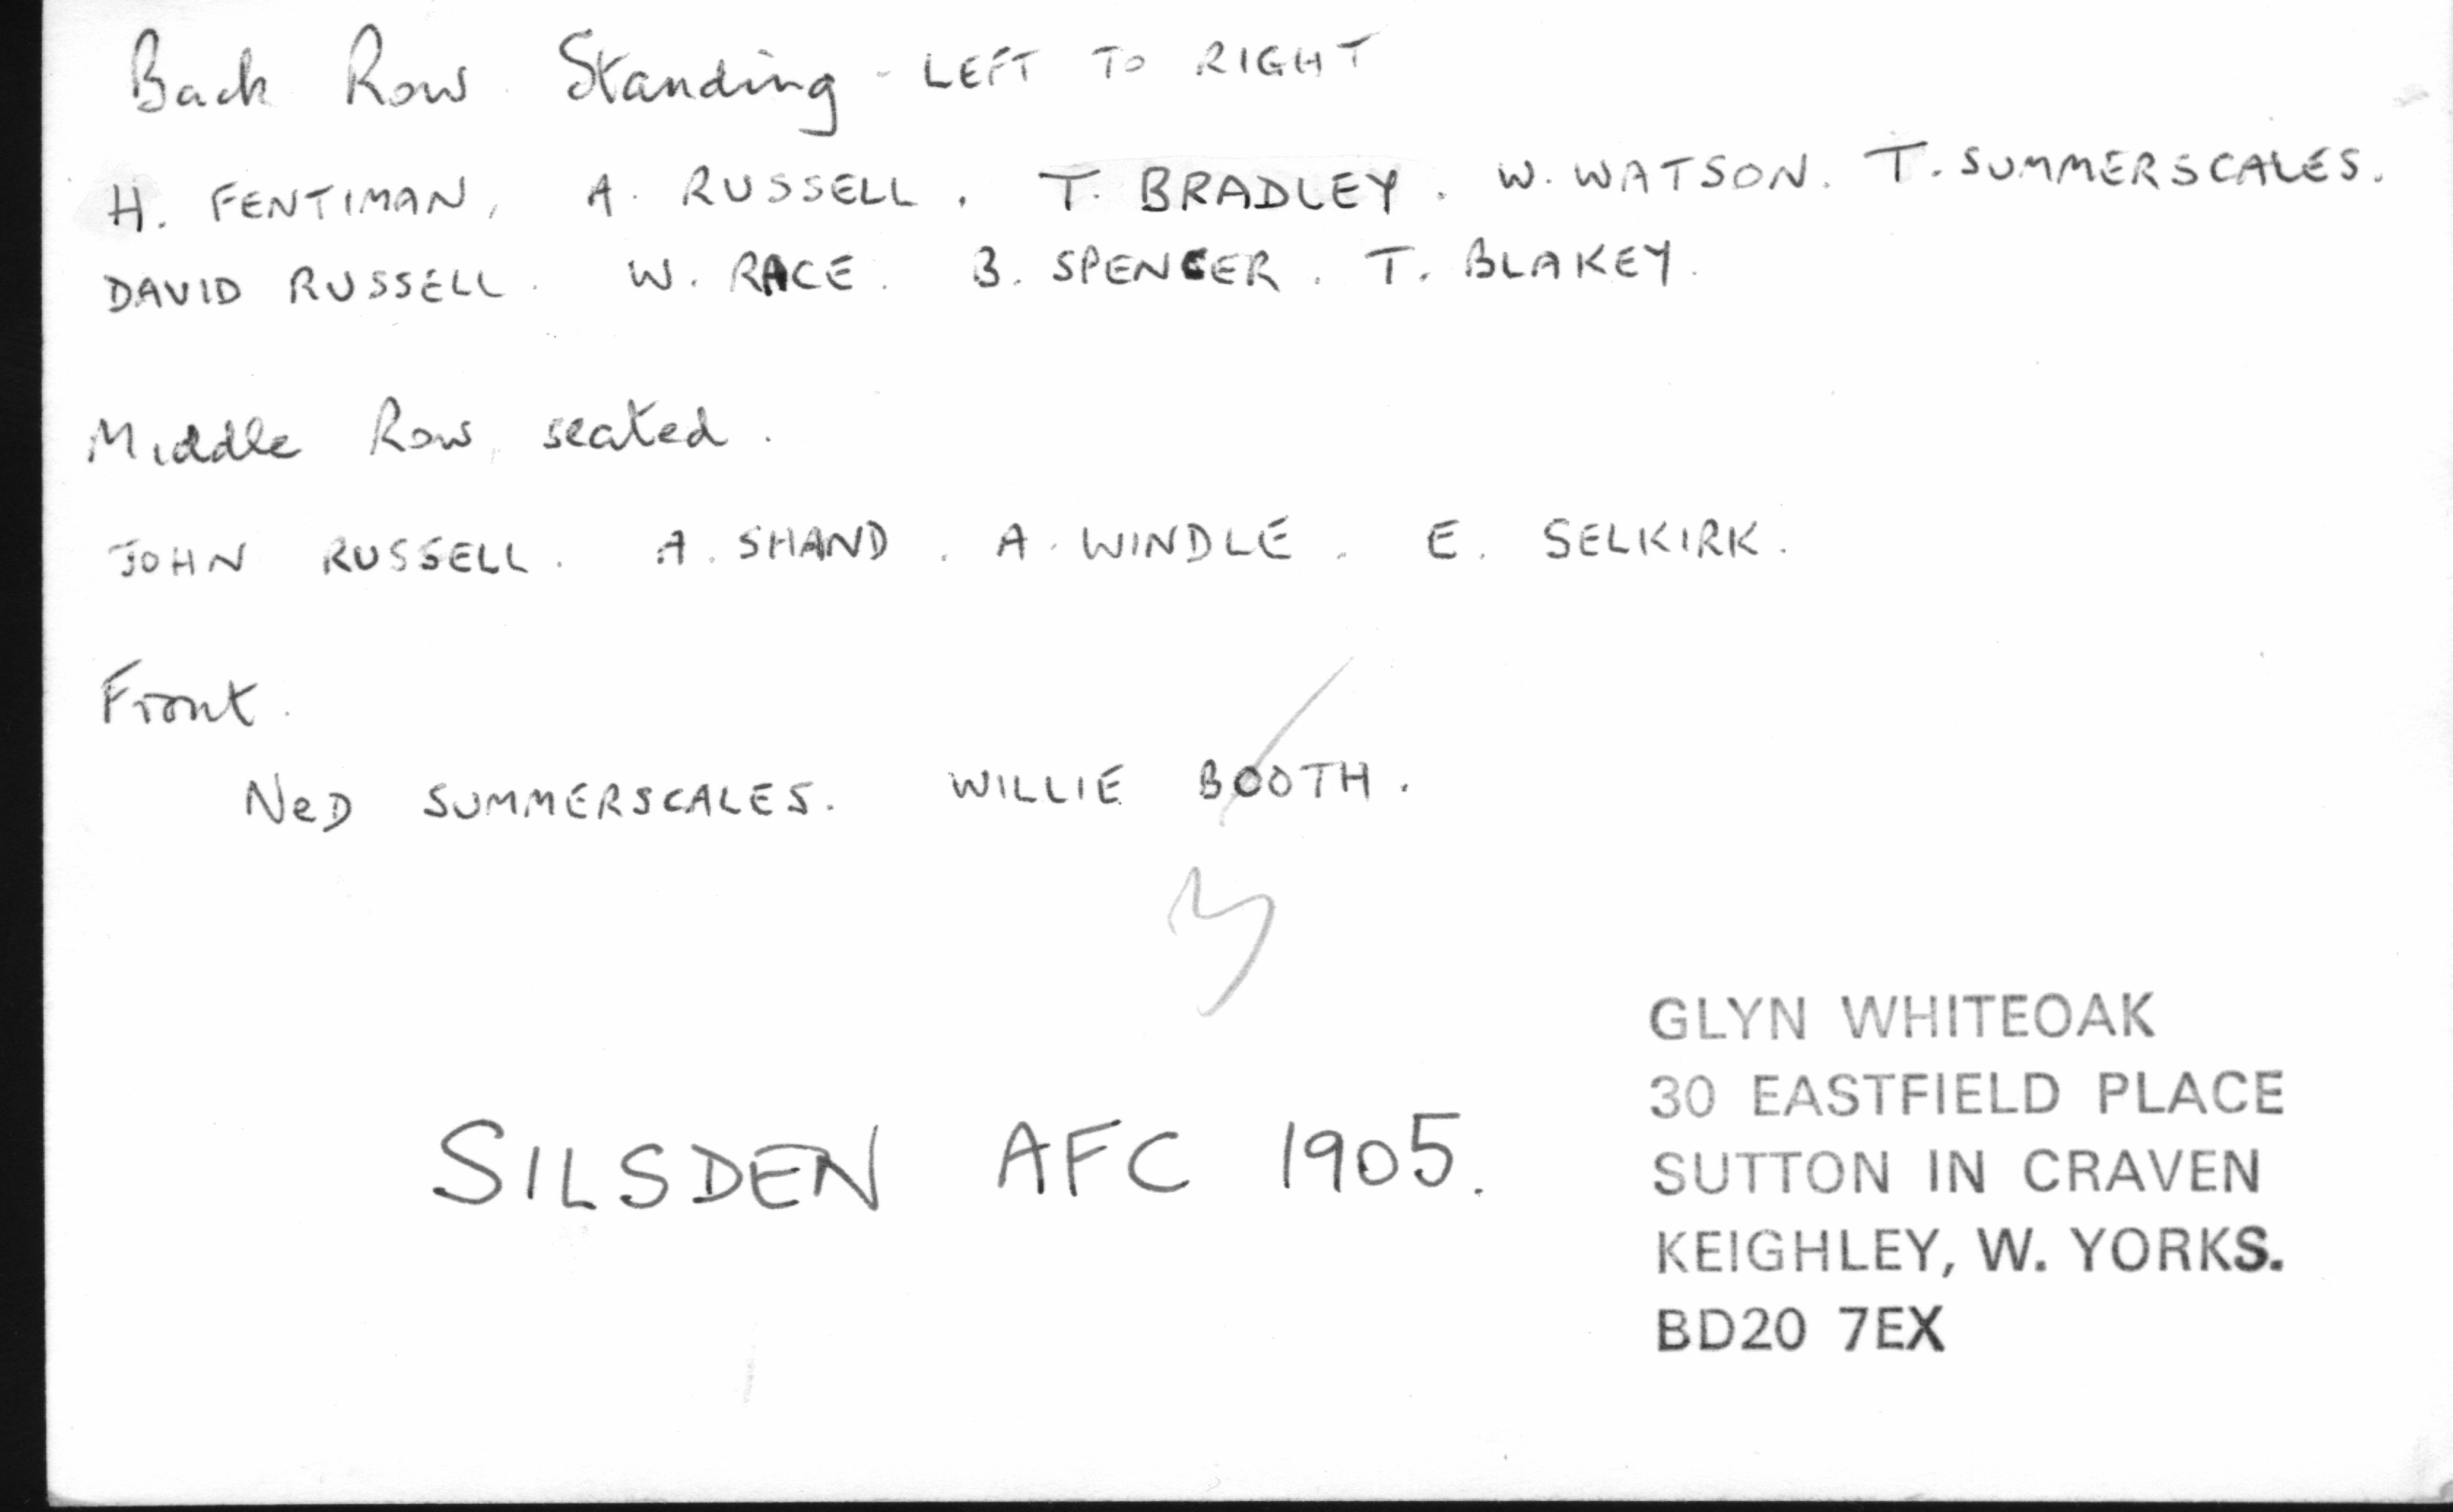 Back Row Standing - LEFT TO RIGHT
H. FENTIMAN, A. RUSSELL. T. BRADLEY. W. WATSON. T. SUMMERSCALES.
DAVID RUSSELL. W. RACE. B. SPENCER. T. BLAKEY.
Middle Row, seated.
JOHN RUSSELL. A. SHAND. A. WINDLE. E. SELKIRK.
Front.
NeD SUMMERSCALES. WILLIE BOOTH.
SILSDEN AFC 1905.
GLYN WHITEOAK
30 EASTFIELD PLACE
SUTTON IN CRAVEN
KEIGHLEY, W. YORKS.
BD20 7EX